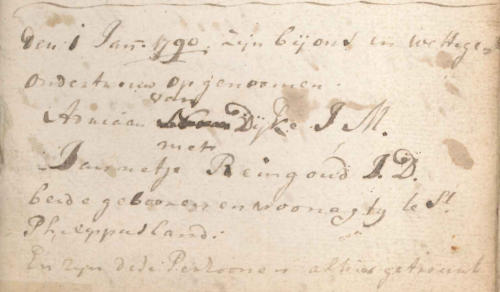 den 1 Jan: 1790, Zijn bij ons in wettige
ondertrouw opgenoomen.
van
Adriaan Dijke J M.
met
Jannetje Reingoud J. D.
beide gebooren en woonagtig te St.
Phlippusland.
En zijn dese Perzoonen alhier getrouwt